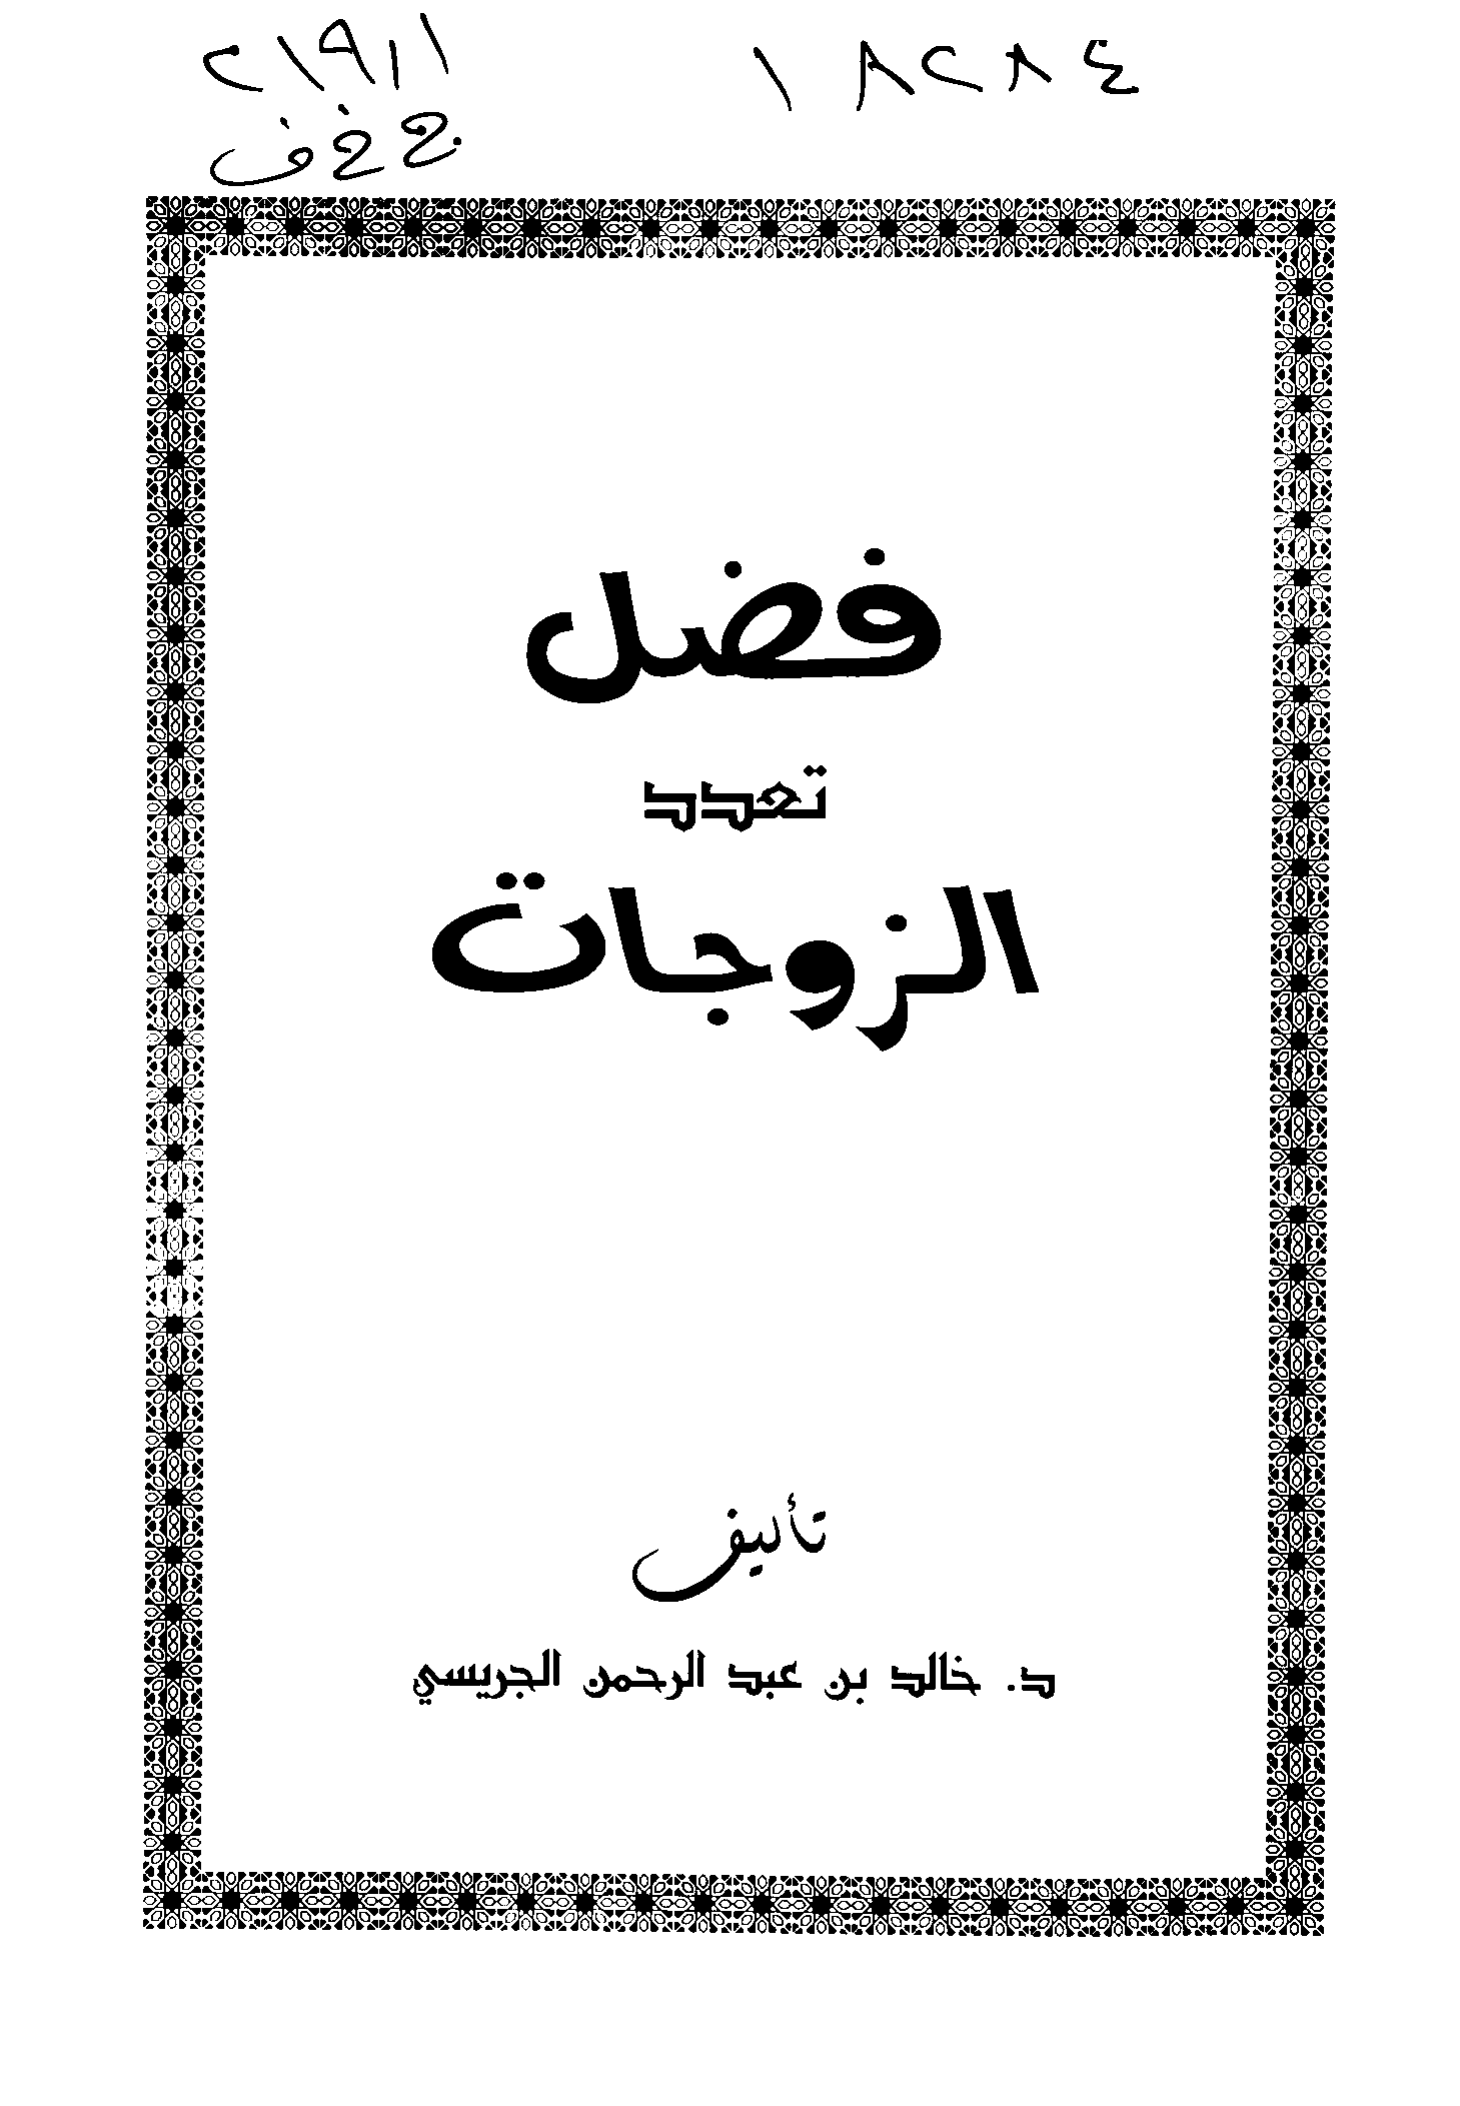 ١٨٢٨٤
٢١٩٫١
ج خ ف
فضل
تعدد
الزوجات
تأليف
د. خالد بن عبد الرحمن الجريسي